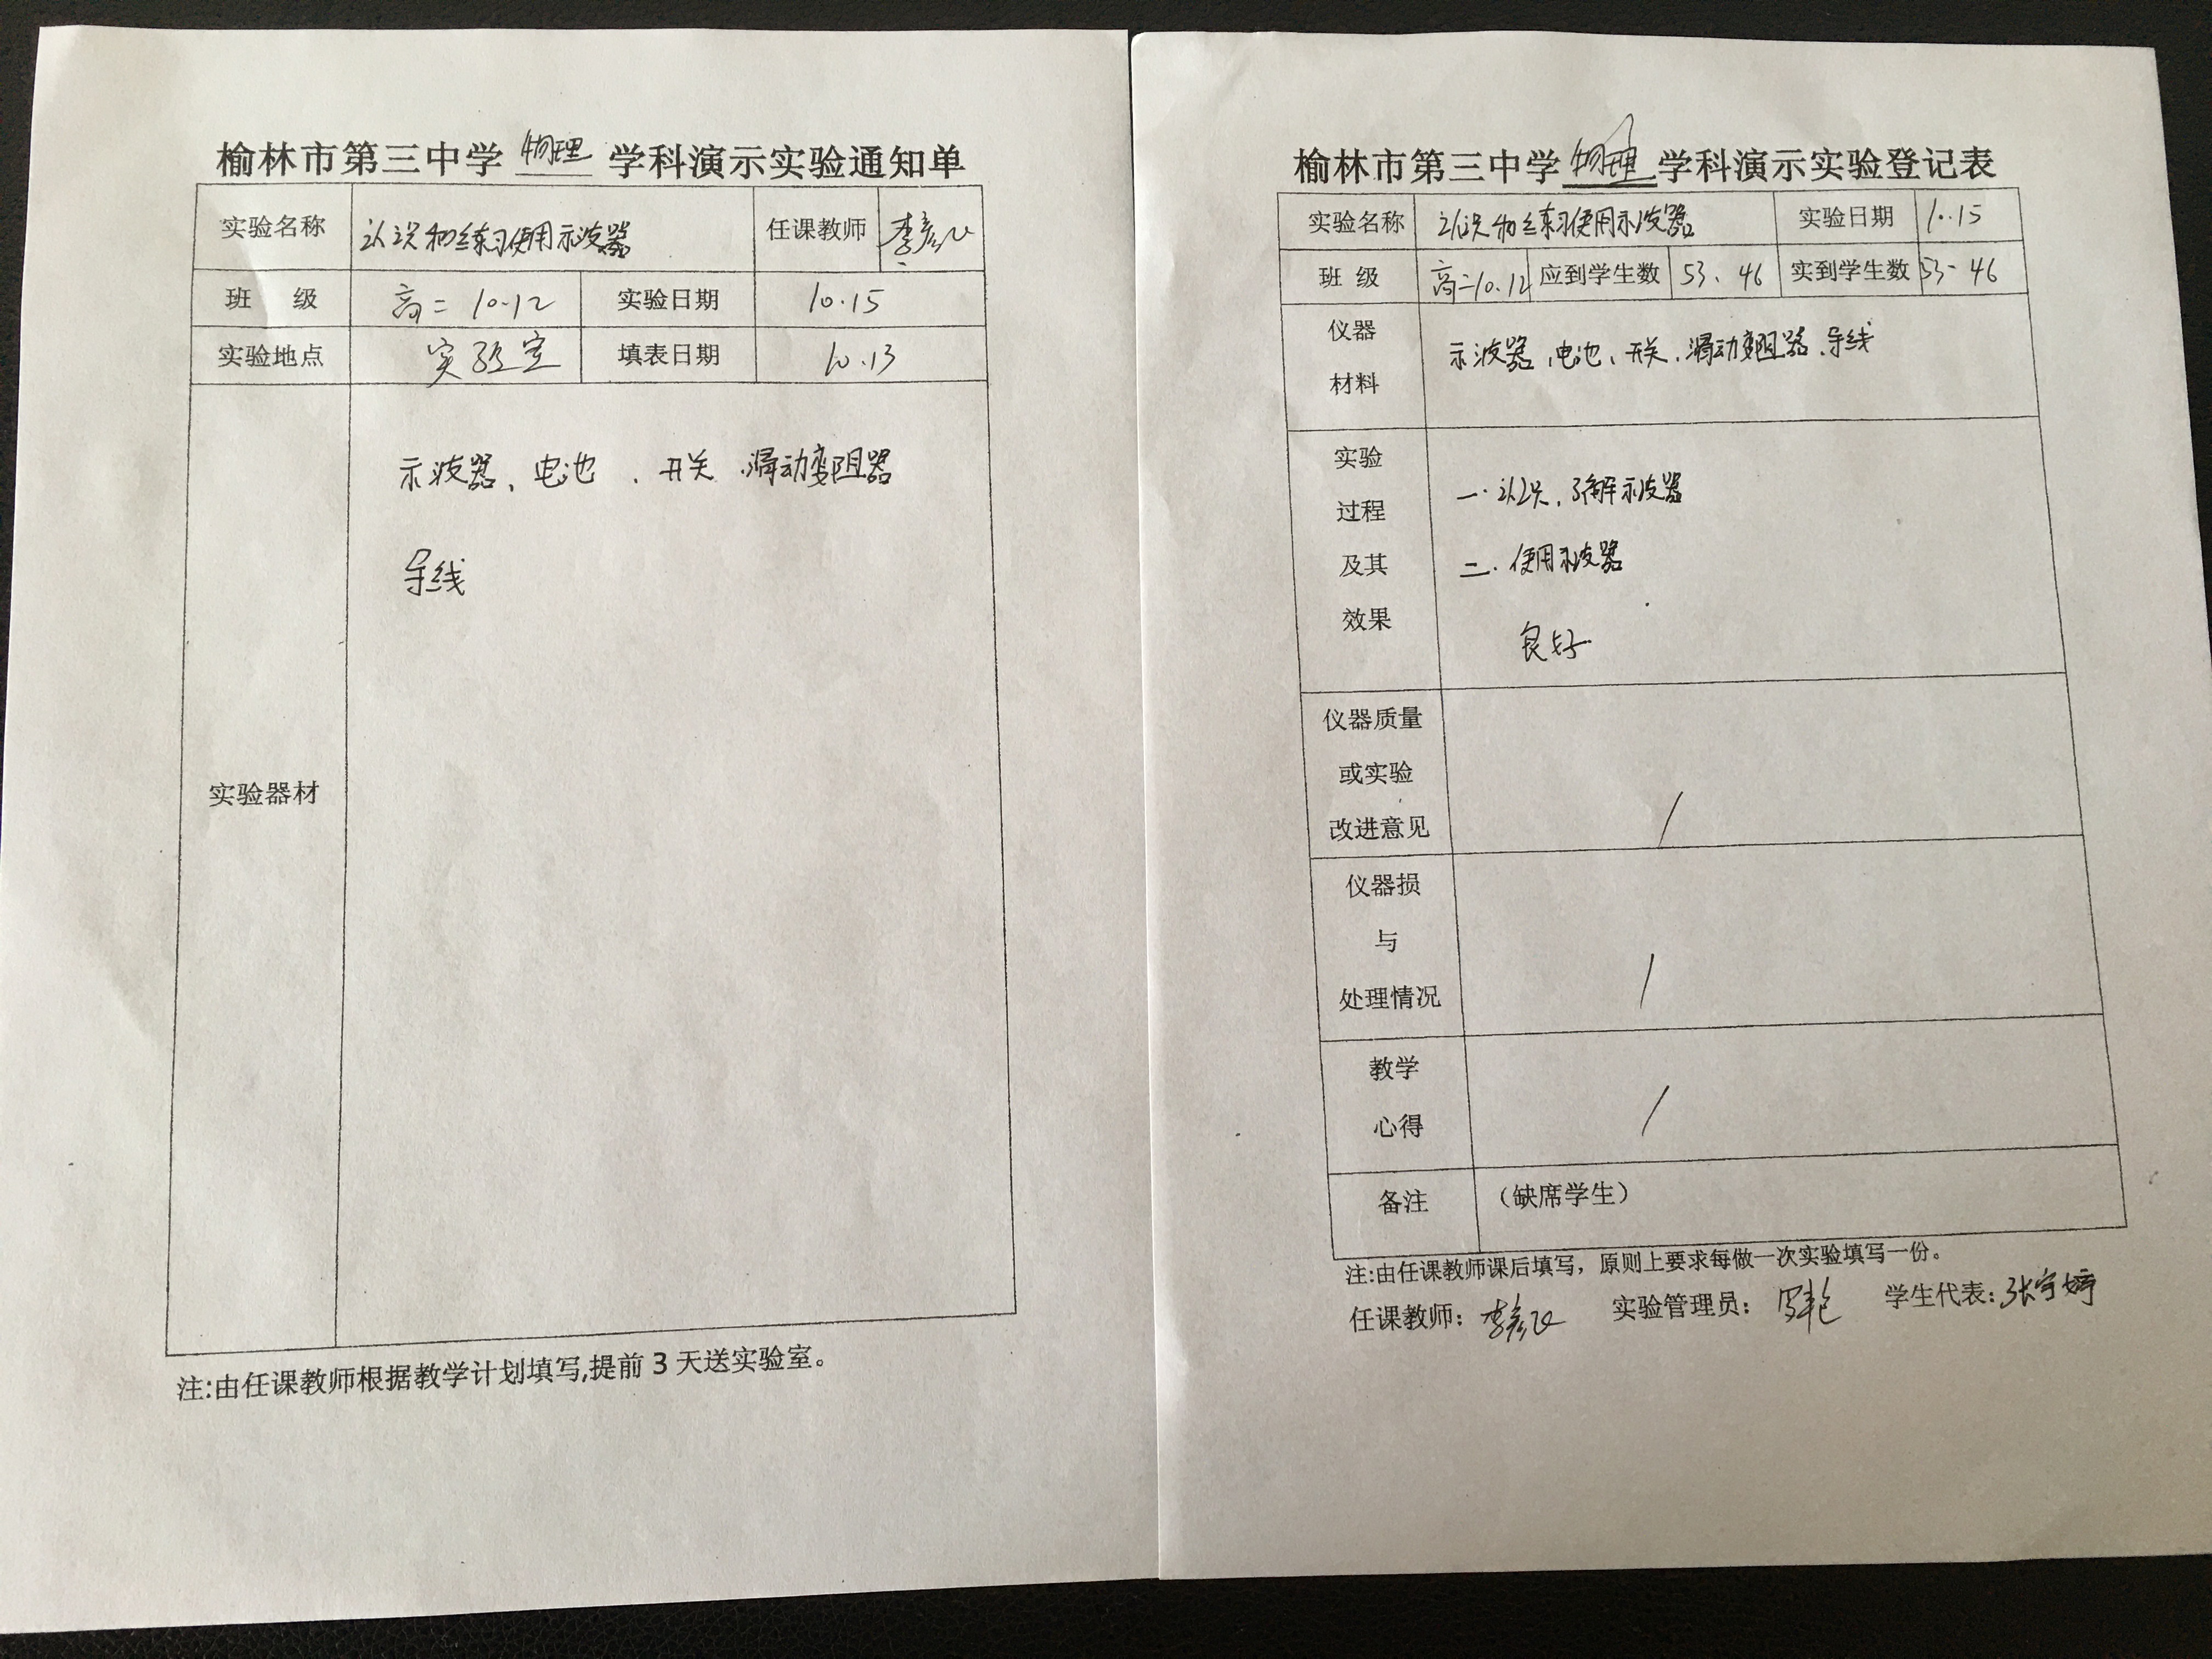 榆林市第三中学 物理 学科演示实验通知单
实验名称 认识和练习使用示波器 任课教师 李彦
班 级 高二 10.12 实验日期 10.15
实验地点 实验室 填表日期 10.13
实验器材
示波器、电池、开关、滑动变阻器
导线
注:由任课教师根据教学计划填写,提前 3 天送实验室。
榆林市第三中学 物理 学科演示实验登记表
实验名称 认识和练习使用示波器 实验日期 10.15
班 级 高二10.12 应到学生数 53、46 实到学生数 53-46
仪器
材料
示波器、电池、开关、滑动变阻器、导线
实验
过程
及其
效果
一.认识、了解示波器
二.使用示波器
良好
仪器质量
或实验
改进意见
/
仪器损
与
处理情况
/
教学
心得
/
备注 （缺席学生）
注:由任课教师课后填写，原则上要求每做一次实验填写一份。
任课教师： 李彦 实验管理员： 学生代表：张宇婷